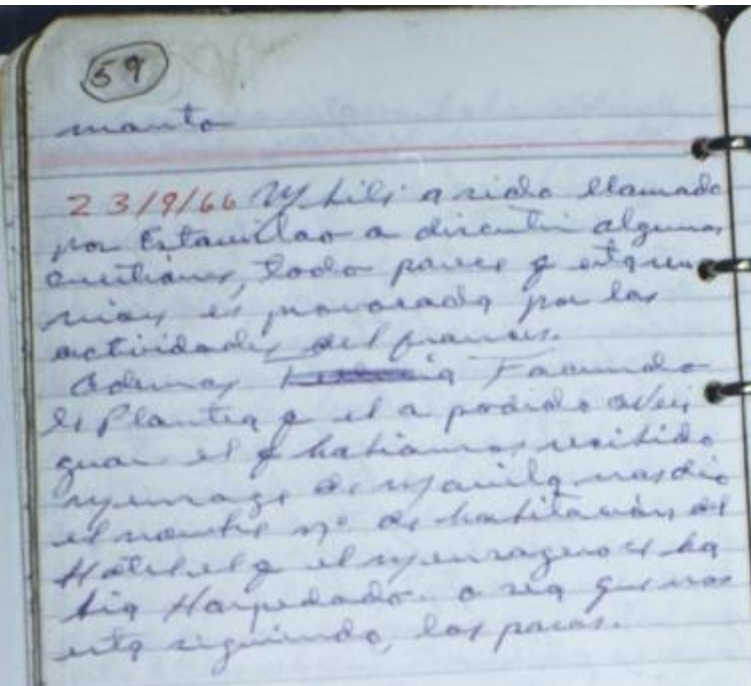 59
manto
23/9/66 Mbili a sido llamado
por Estanislao a discutir algunas
cuestiones, todo parece q esta reu
nion es provocada por las
actividades del frances.
Ademas Facundo
le Plantea q el a podido averi
guar el q habiamos recibido
mensage de Manila nos dio
el nombre nº de habitacion del
Hotel el q el mensagero se ha
bia Hospedado. o sea que nos
esta siguiendo, los pasos.